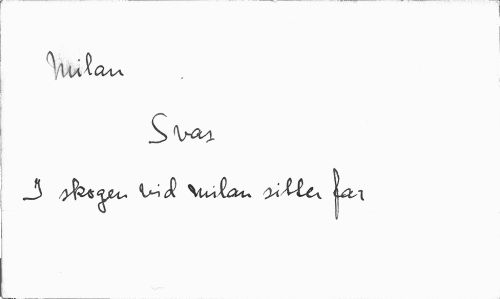 Milan
Svar
I skogen vid milan sitter far